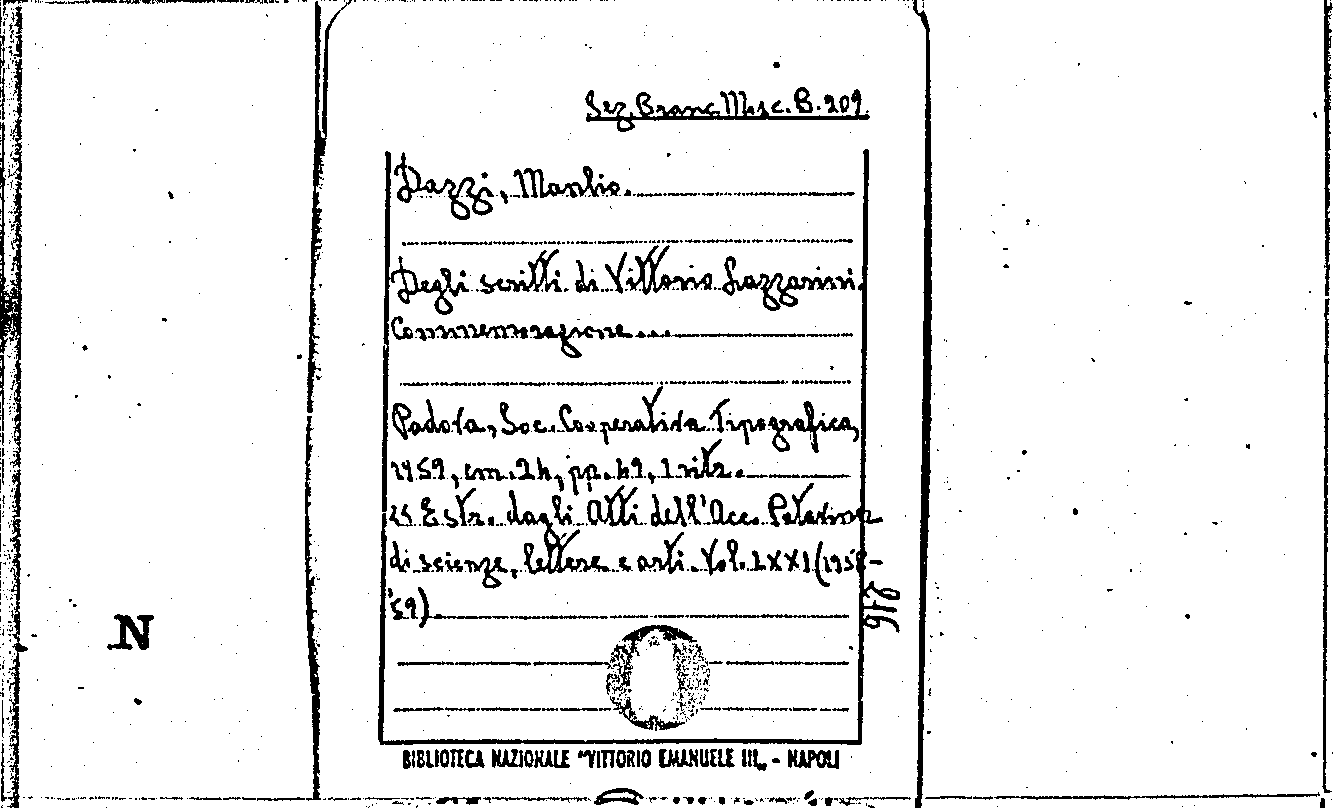 Sez. Branc. Misc. B. 209.
Dazzi, Manlio.
Degli scritti di Vittorio Lazzarini.
Commemorazione...
Padova, Soc. Cooperativa Tipografica,
1959, cm. 24, pp. 49, 1 ritr.
Estr. dagli Atti dell'Acc. Patavina
di scienze, lettere e arti. Vol. LXXI (1958-
'59).
216
N
BIBLIOTECA NAZIONALE "VITTORIO EMANUELE III„ - NAPOLI